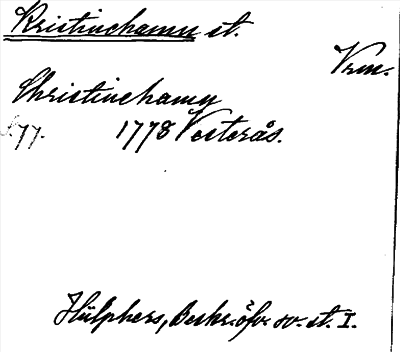 Kristinehamn st.
Vrm.
Christinehamn
S.77. 1778 Vesterås.
Hülphers, Beskr. öfv. sv. st. I.